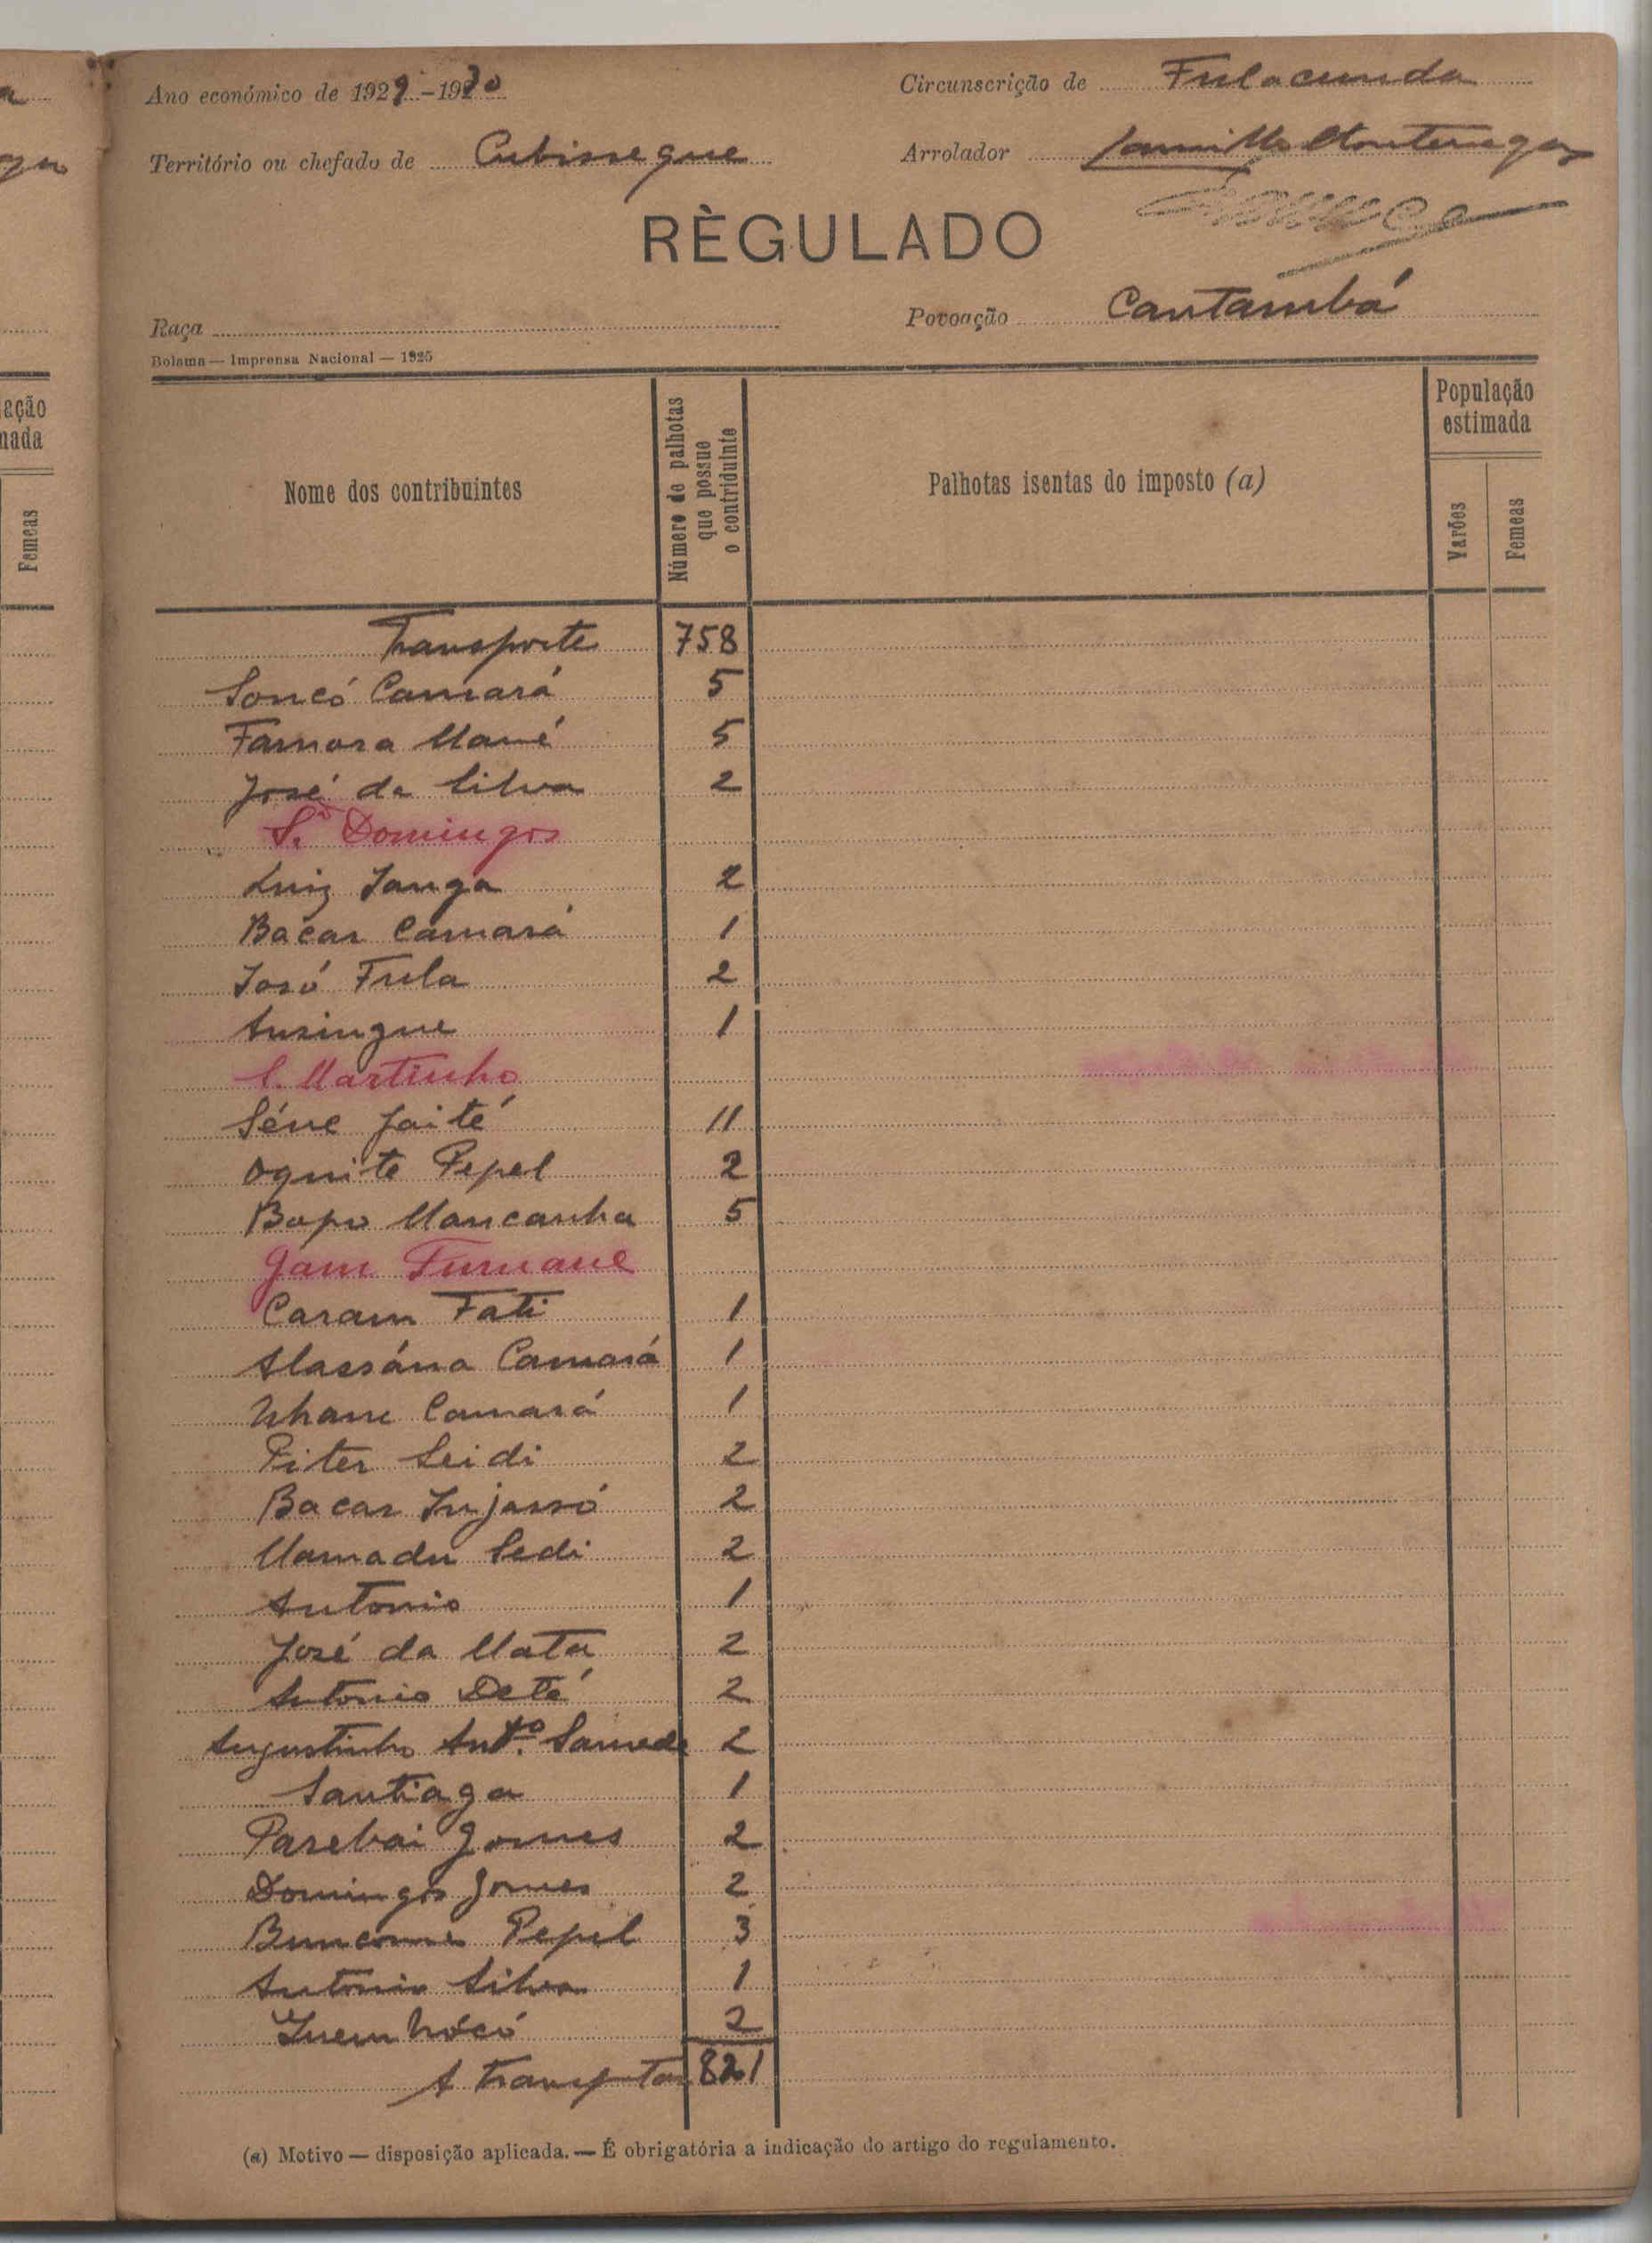 Ano económico de 1929-1930
Circunscrição de Fulacunda
Território ou chefado de Cubisseque
Arrolador Camillo Montenegro
RÈGULADO
Raça
Povoação Cantambá
Bolama — Imprensa Nacional — 1925
Nome dos contribuintes
Número de palhotas que possue o contriduinte
Palhotas isentas do imposto (a)
População estimada
Varões
Femeas
ação
nada
Femeas
Transporte 758
Soncó Camará 5
Famora Mané 5
José da Silva 2
S. Domingos
Luiz Sanga 2
Bacar Camará 1
José Fula 2
Ansingue 1
S. Martinho
Séne Jaité 11
Oquite Pepel 2
Bapo Mancanha 5
Gam Turnane
Caram Fati 1
Alassána Camará 1
Camará 1
Piter Seidi 2
Bacar Injassó 2
Mamadu Sedi 2
Antonio 1
José da Mata 2
Antonio Deté 2
Augustinho Antº. Sanede 2
Santiago 1
Parebai Gomes 2
Domingos Gomes 2
Pepel 3
Antonio Silva 1
2
A transportar 821
(a) Motivo — disposição aplicada. — É obrigatória a indicação do artigo do regulamento.